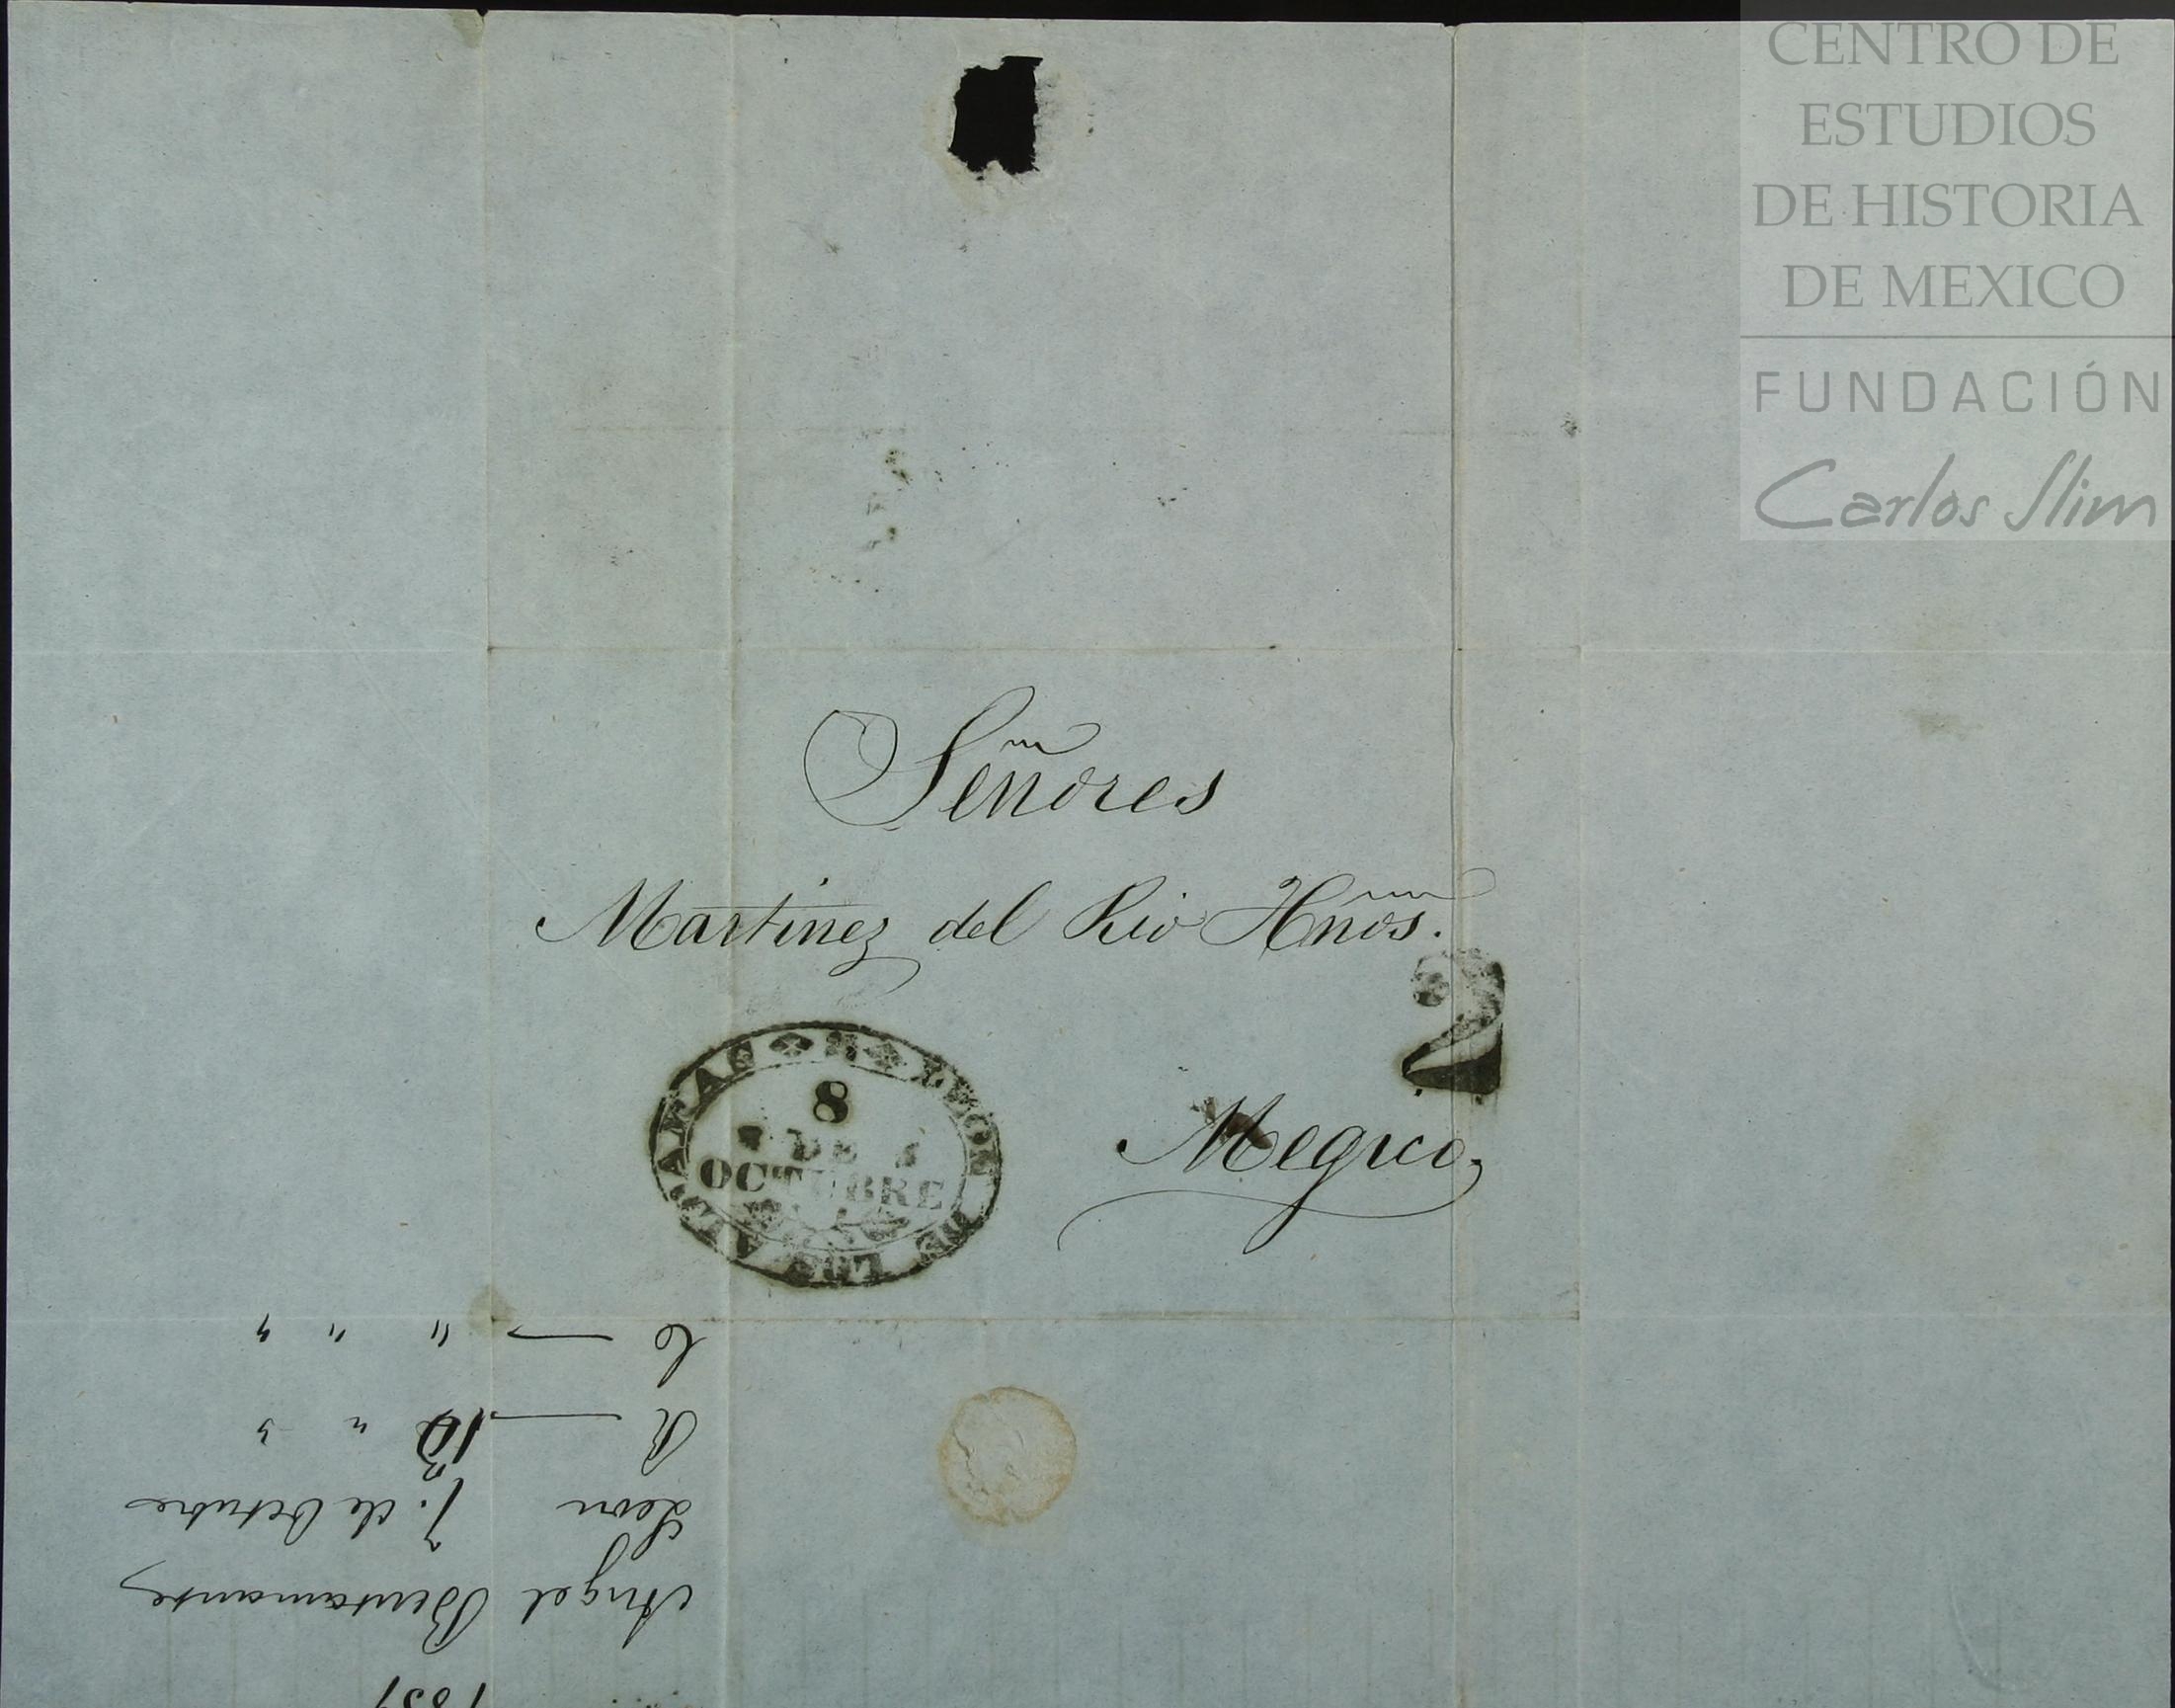 CENTRO DE
ESTUDIOS
DE HISTORIA
DE MEXICO
FUNDACIÓN
Carlos Slim
Señores
Martinez del Rio Hños.
2
Megico,
LEON DE LOS ALDAMAS
8
DE
OCTUBRE
Angel Bustamante
Leon 7. de Octubre
R 10 " "
C " " "